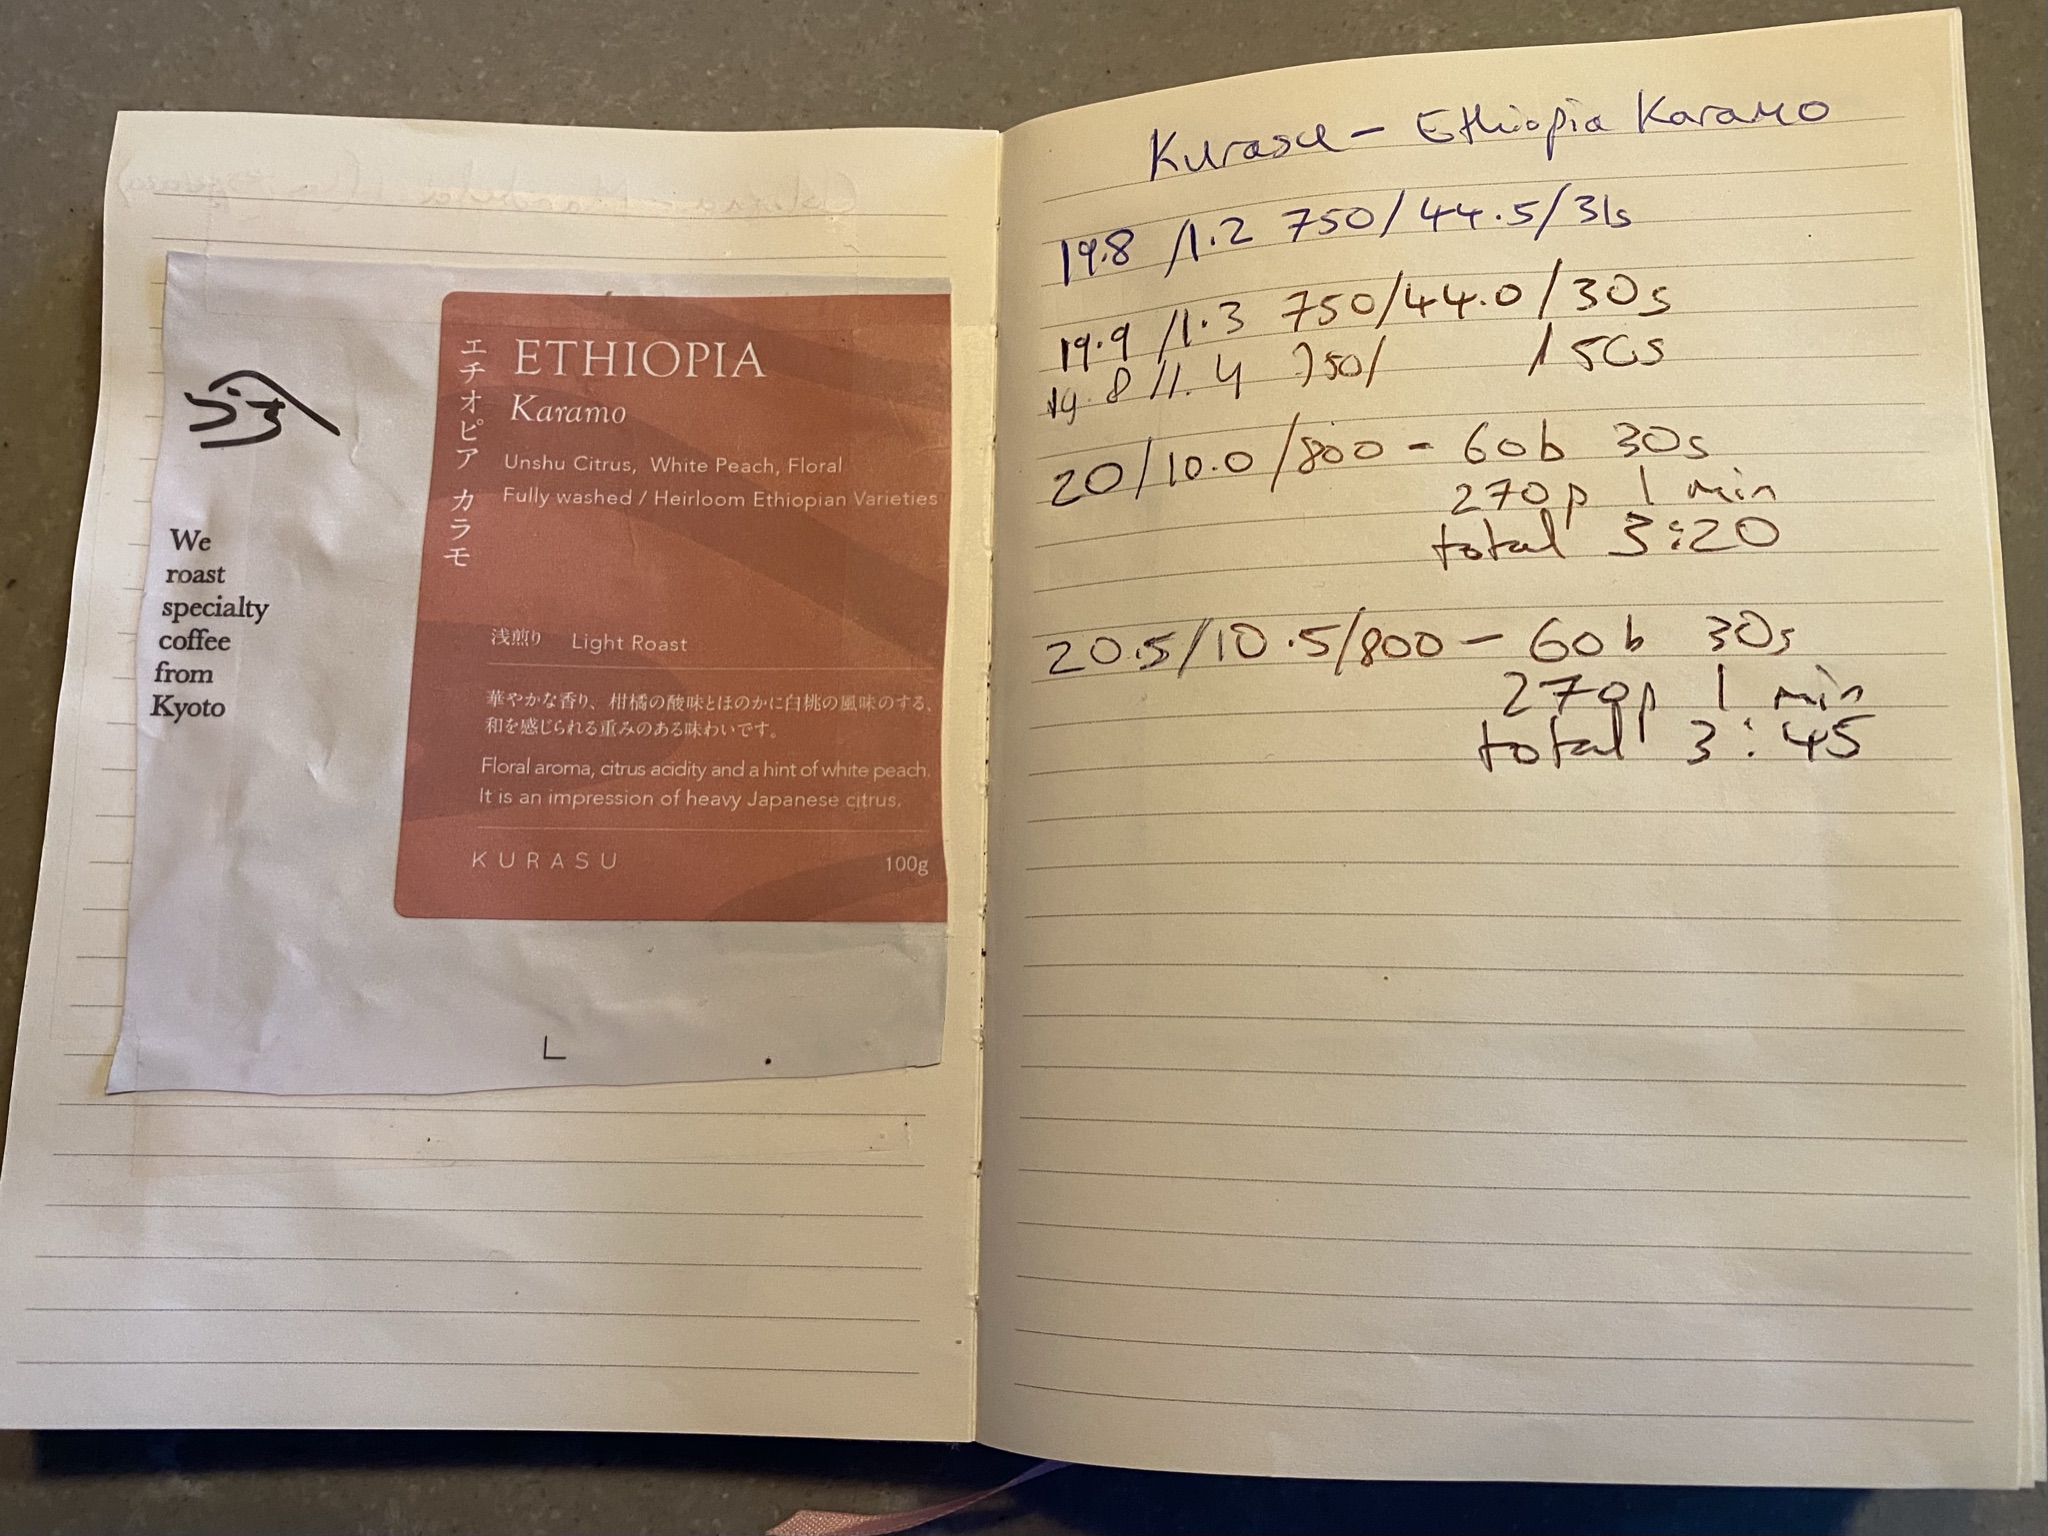 エチオピア カラモ
ETHIOPIA
Karamo
Unshu Citrus, White Peach, Floral
Fully washed / Heirloom Ethiopian Varieties
We
roast
specialty
coffee
from
Kyoto
浅煎り Light Roast
華やかな香り、柑橘の酸味とほのかに白桃の風味のする、
和を感じられる重みのある味わいです。
Floral aroma, citrus acidity and a hint of white peach.
It is an impression of heavy Japanese citrus.
KURASU 100g
Kurasu - Ethiopia Karamo
19.8 /1.2 750/44.5/31s
19.9 /1.3 750/44.0/30s
19.8 /1.4 750/ /50s
20/10.0/800 - 60b 30s
270p 1 min
total 3:20
20.5/10.5/800 - 60b 30s
270p 1 min
total 3:45